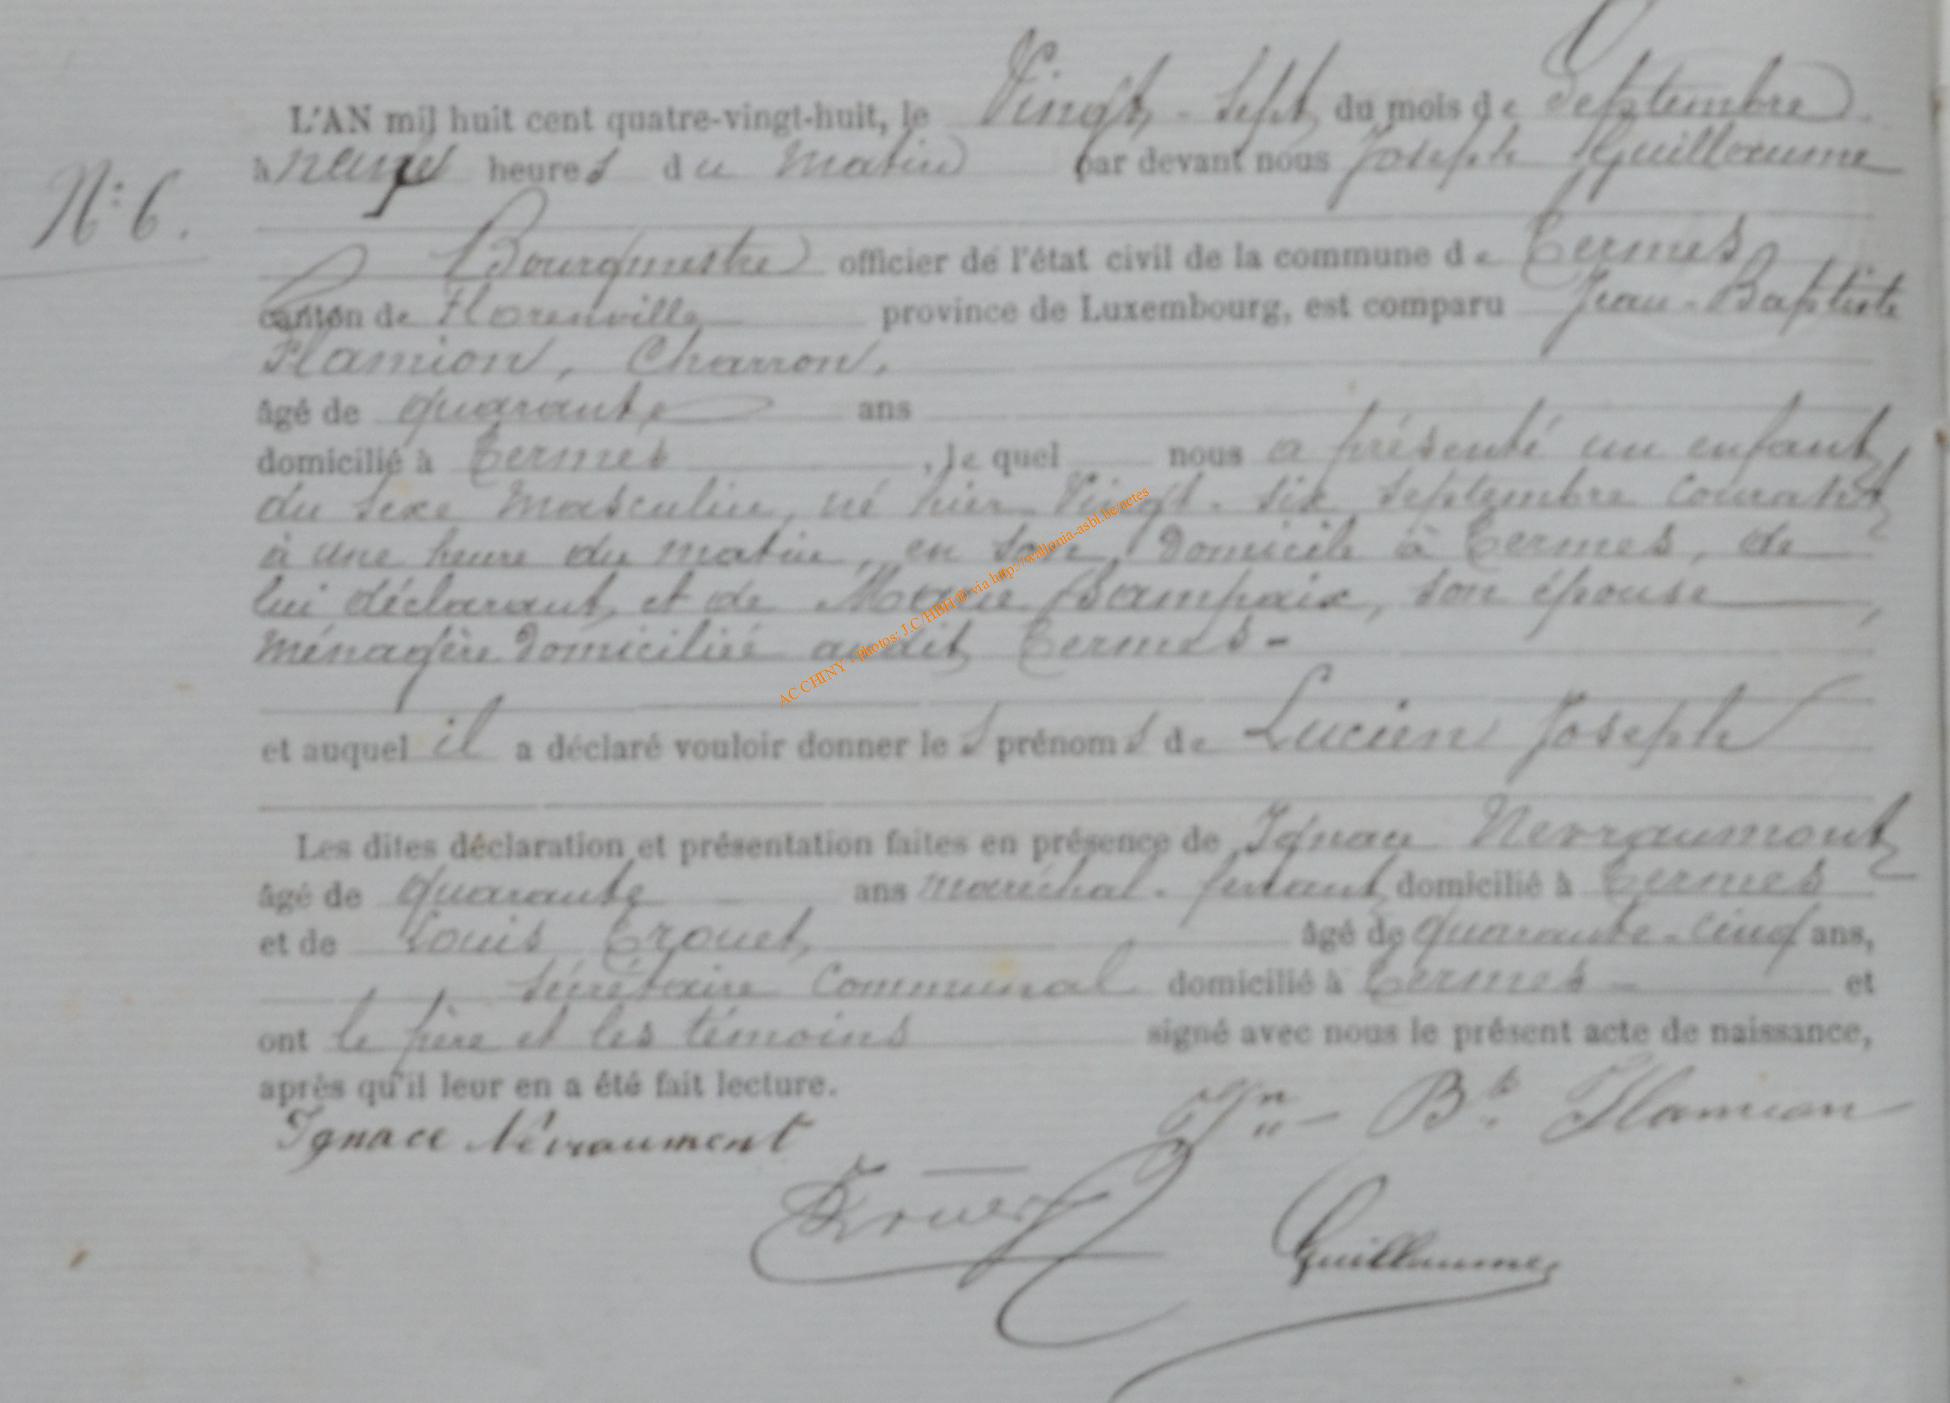 L'AN mil huit cent quatre-vingt-huit, le Vingt-sept du mois de Septembre
à neuf heures du matin par devant nous Joseph Guillaume
N: 6.
Bourgmestre officier de l'état civil de la commune de Termes
canton de Florenville province de Luxembourg, est comparu Jean-Baptiste
Flamion, Charron,
âgé de quarante ans
domicilié à Termes, le quel nous a présenté un enfant
du sexe masculin, né hier Vingt-six septembre courant
à une heure du matin, en son domicile à Termes, de
lui déclarant, et de Marie Bampaix, son épouse
ménagère domiciliée audit Termes-
AC CHINY - Photos: J.C/HBH @ via http://wallonia-asbl.be/actes
et auquel il a déclaré vouloir donner les prénoms de Lucien Joseph
Les dites déclaration et présentation faites en présence de Ignace Nevraumont
âgé de quarante ans maréchal-ferrant domicilié à Termes
et de Louis Trouet, âgé de quarante-cinq ans,
sécrétaire Communal domicilié à Termes - et
ont le père et les témoins signé avec nous le présent acte de naissance,
après qu'il leur en a été fait lecture.
Ignace Névraumont Jn - Bte Flamion
Trouet Guillaume